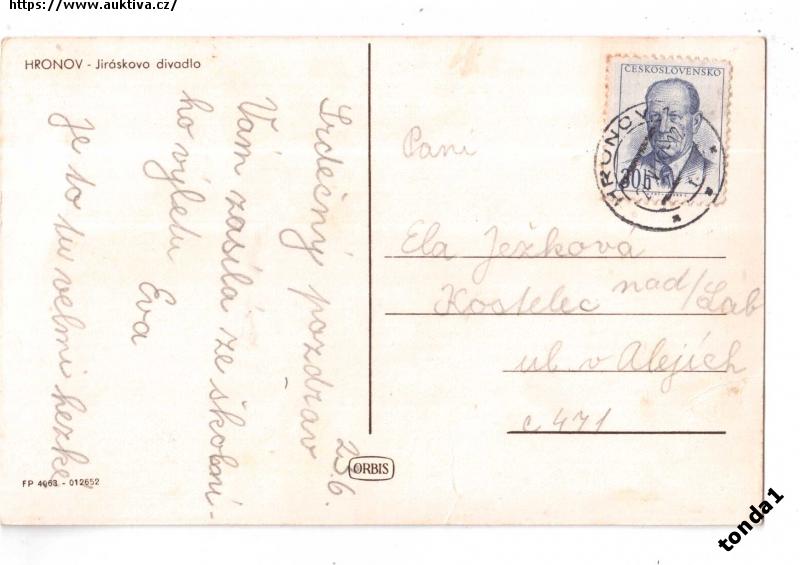 https://www.auktiva.cz/
HRONOV - Jiráskovo divadlo
23.6.
Srdečný pozdrav
Vám zasílá ze školní-
ho výletu
Eva
Je to tu velmi hezké
FP 4063 - 012652
ORBIS
ČESKOSLOVENSKO
30h
HRONOV
Paní
Ela Ježková
Kostelec nad/Lab
ul. v Alejích
č 471
tonda1